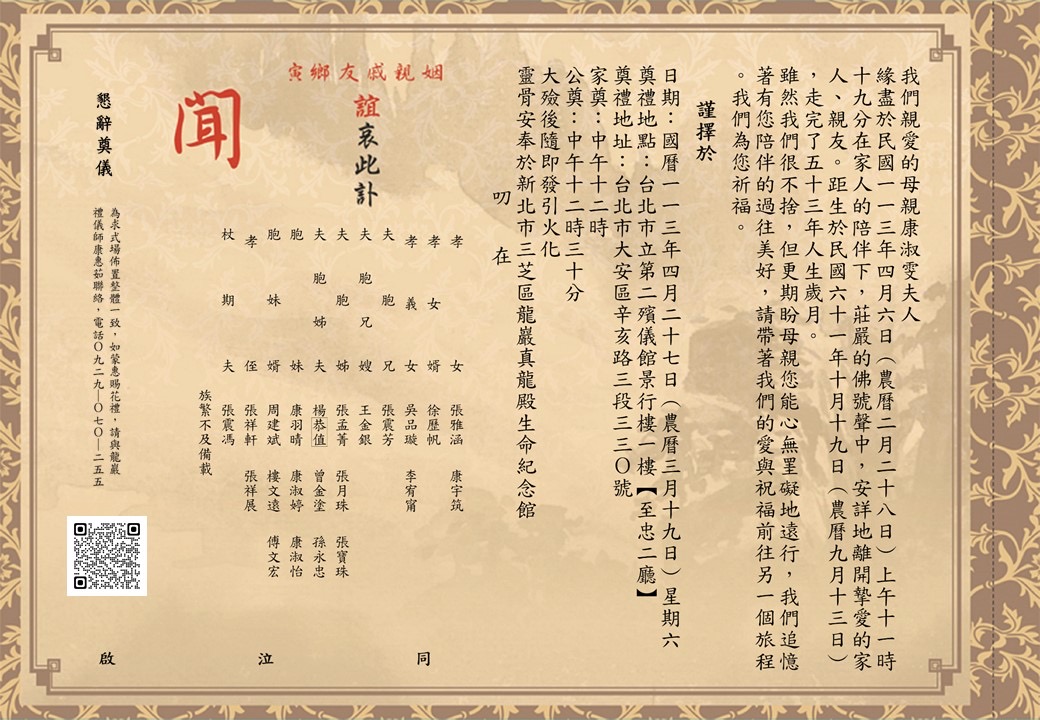 我們親愛的母親康淑雯夫人
緣盡於民國一一三年四月六日（農曆二月二十八日）上午十一時
十九分在家人的陪伴下，莊嚴的佛號聲中，安詳地離開摯愛的家
人、親友。距生於民國六十一年十月十九日（農曆九月十三日）
，走完了五十三年人生歲月。
雖然我們很不捨，但更期盼母親您能心無罣礙地遠行，我們追憶
著有您陪伴的過往美好，請帶著我們的愛與祝福前往另一個旅程
。我們為您祈福。
謹擇於
日期：國曆一一三年四月二十七日（農曆三月十九日）星期六
奠禮地點：台北市立第二殯儀館景行樓一樓【至忠二廳】
奠禮地址：台北市大安區辛亥路三段三三０號
家奠：中午十二時
公奠：中午十二時三十分
大殮後隨即發引火化
靈骨安奉於新北市三芝區龍巖真龍殿生命紀念館
叨 在
姻親戚友鄉寅
誼哀此訃
聞
孝女 張雅涵 康宇筑
孝女婿 徐歷帆
孝義女 吳品璇 李宥甯
夫胞兄 張震芳
夫胞兄嫂 王金銀
夫胞姊 張孟菁 張月珠 張寶珠
夫胞姊夫 楊恭值 曾金塗 孫永忠
胞妹 康羽晴 康淑婷 康淑怡
胞妹婿 周建斌 樓文遠 傅文宏
孝侄 張祥軒 張祥展
杖期夫 張震馮
族繁不及備載
同 泣 啟
懇辭奠儀
為求式場佈置整體一致，如蒙惠賜花禮，請與龍巖
禮儀師康惠茹聯絡，電話０九二九—０七０—二五五